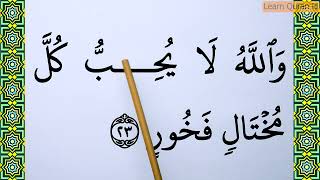 Learn Quran id
وَٱللَّهُ لَا يُحِبُّ كُلَّ
مُخْتَالٍ فَخُورٍ ٢٣